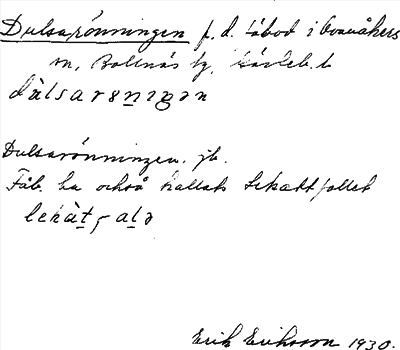 Dulsarönningen f. d. fäbod i Ovanåkers
m, Bollnäs tg, Gävleb. l.
dùlsarønıŋən
Dulsarönningen. jb.
Fäb. ha också kallats Lekattfallet
lekàt, alə
Erik Eriksson 1930.